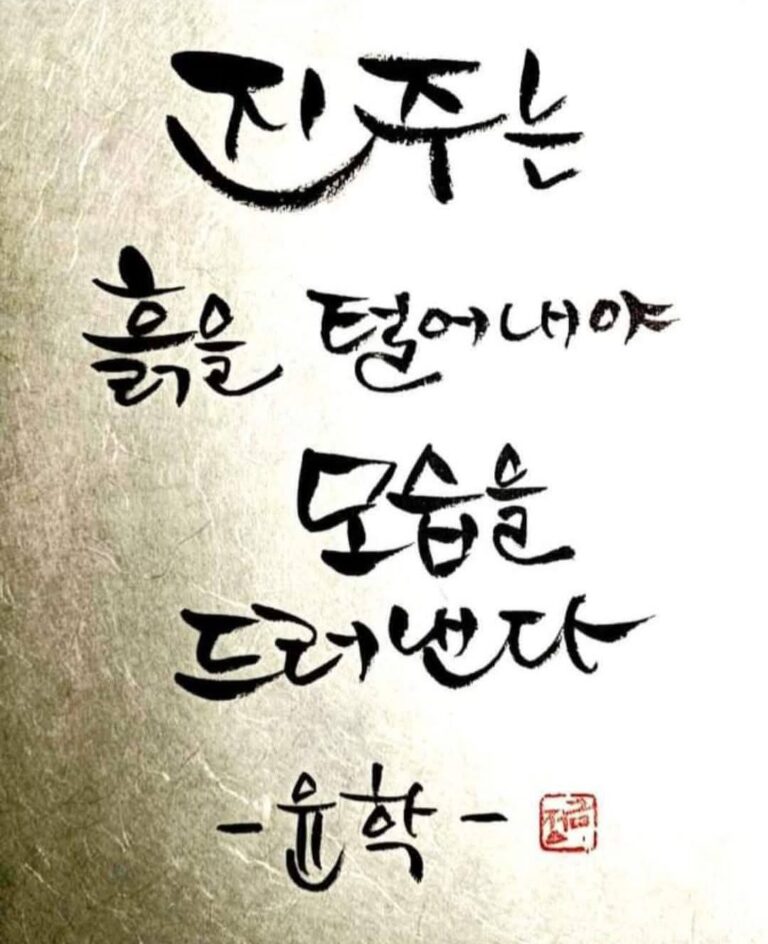 진주는
흙을 털어내야
모습을
드러낸다
- 윤학 -